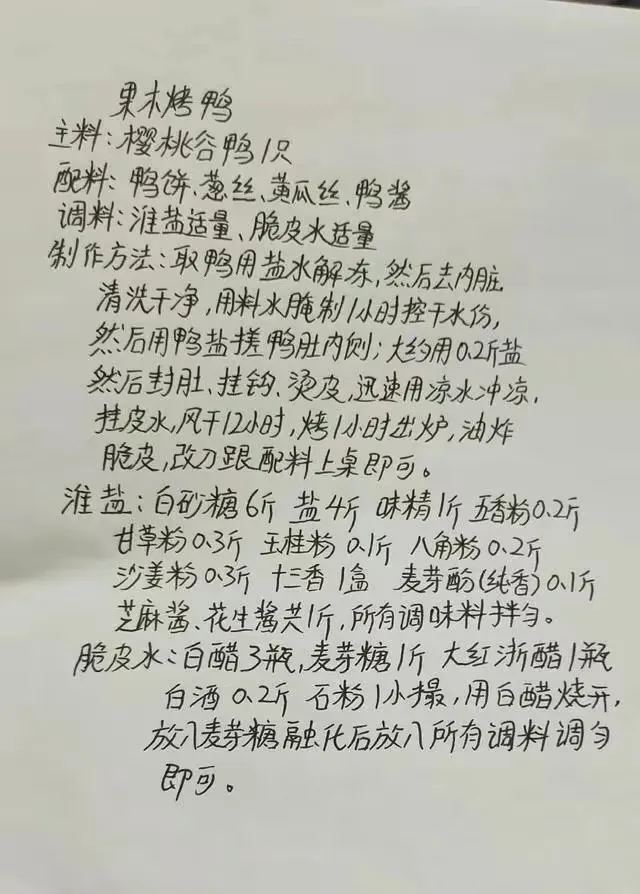 果木烤鸭
主料:樱桃谷鸭1只
配料:鸭饼、葱丝、黄瓜丝、鸭酱
调料:淮盐适量、脆皮水适量
制作方法:取鸭用盐水解冻,然后去内脏
清洗干净,用料水腌制1小时控干水份,
然后用鸭盐搓鸭肚内侧;大约用0.2斤盐
然后封肚、挂钩、烫皮,迅速用凉水冲凉,
挂皮水,风干12小时,烤1小时出炉,油炸
脆皮,改刀跟配料上桌即可。
淮盐:白砂糖6斤 盐4斤 味精1斤 五香粉0.2斤
甘草粉0.3斤 玉桂粉0.1斤 八角粉0.2斤
沙姜粉0.3斤 十三香1盒 麦芽酚(纯香)0.1斤
芝麻酱、花生酱共1斤,所有调味料拌匀。
脆皮水:白醋3瓶,麦芽糖1斤 大红浙醋1瓶
白酒0.2斤 石粉1小撮,用白醋烧开,
放入麦芽糖融化后放入所有调料调匀
即可。